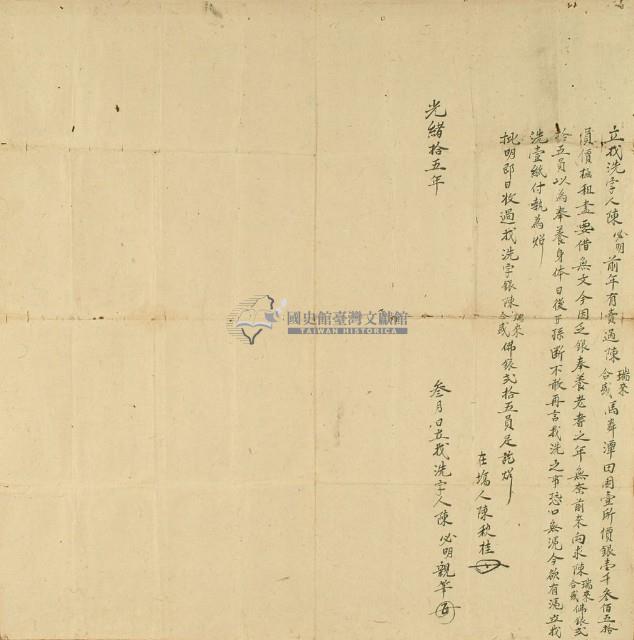 立找洗字人陳必明前年有賣過陳瑞來合盛馬舞潭田園壹所價銀壹千叁佰五拾
員價極租盡要借無文今因乏銀奉養老壽之年無奈前來向求陳瑞來合盛佛銀弍
拾五員以為奉養身体日後子孫斷不敢再言找洗之事恐口無憑今欲有憑立找
洗壹紙付執為炤
批明即日收過找洗字銀陳瑞來合盛佛銀弍拾五員足訖炤
在場人陳秋桂
光緒拾五年叁月 日立找洗字人陳必明親筆
國史館臺灣文獻館
TAIWAN HISTORICA